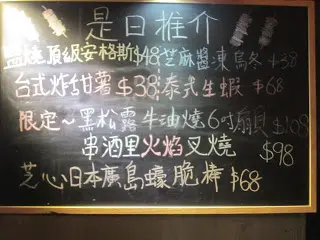 是日推介
鹽燒頂級安格斯$48 芝麻醬凍烏冬$38
台式炸甜薯$38 泰式生蝦$68
限定～黑松露牛油燒6吋扇貝$108
串酒里火焰叉燒$98
芝心日本廣島蠔脆棒$68